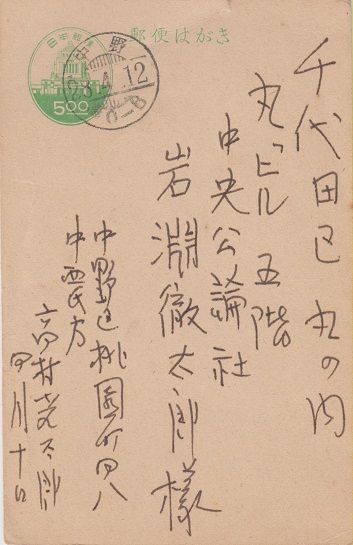 日本郵便
500
郵便はがき
中野
千代田区丸の内
丸ビル五階
中央公論社
岩淵徹太郎様
中野区桃園町四八
中西氏方
高村光太郎
四月十日